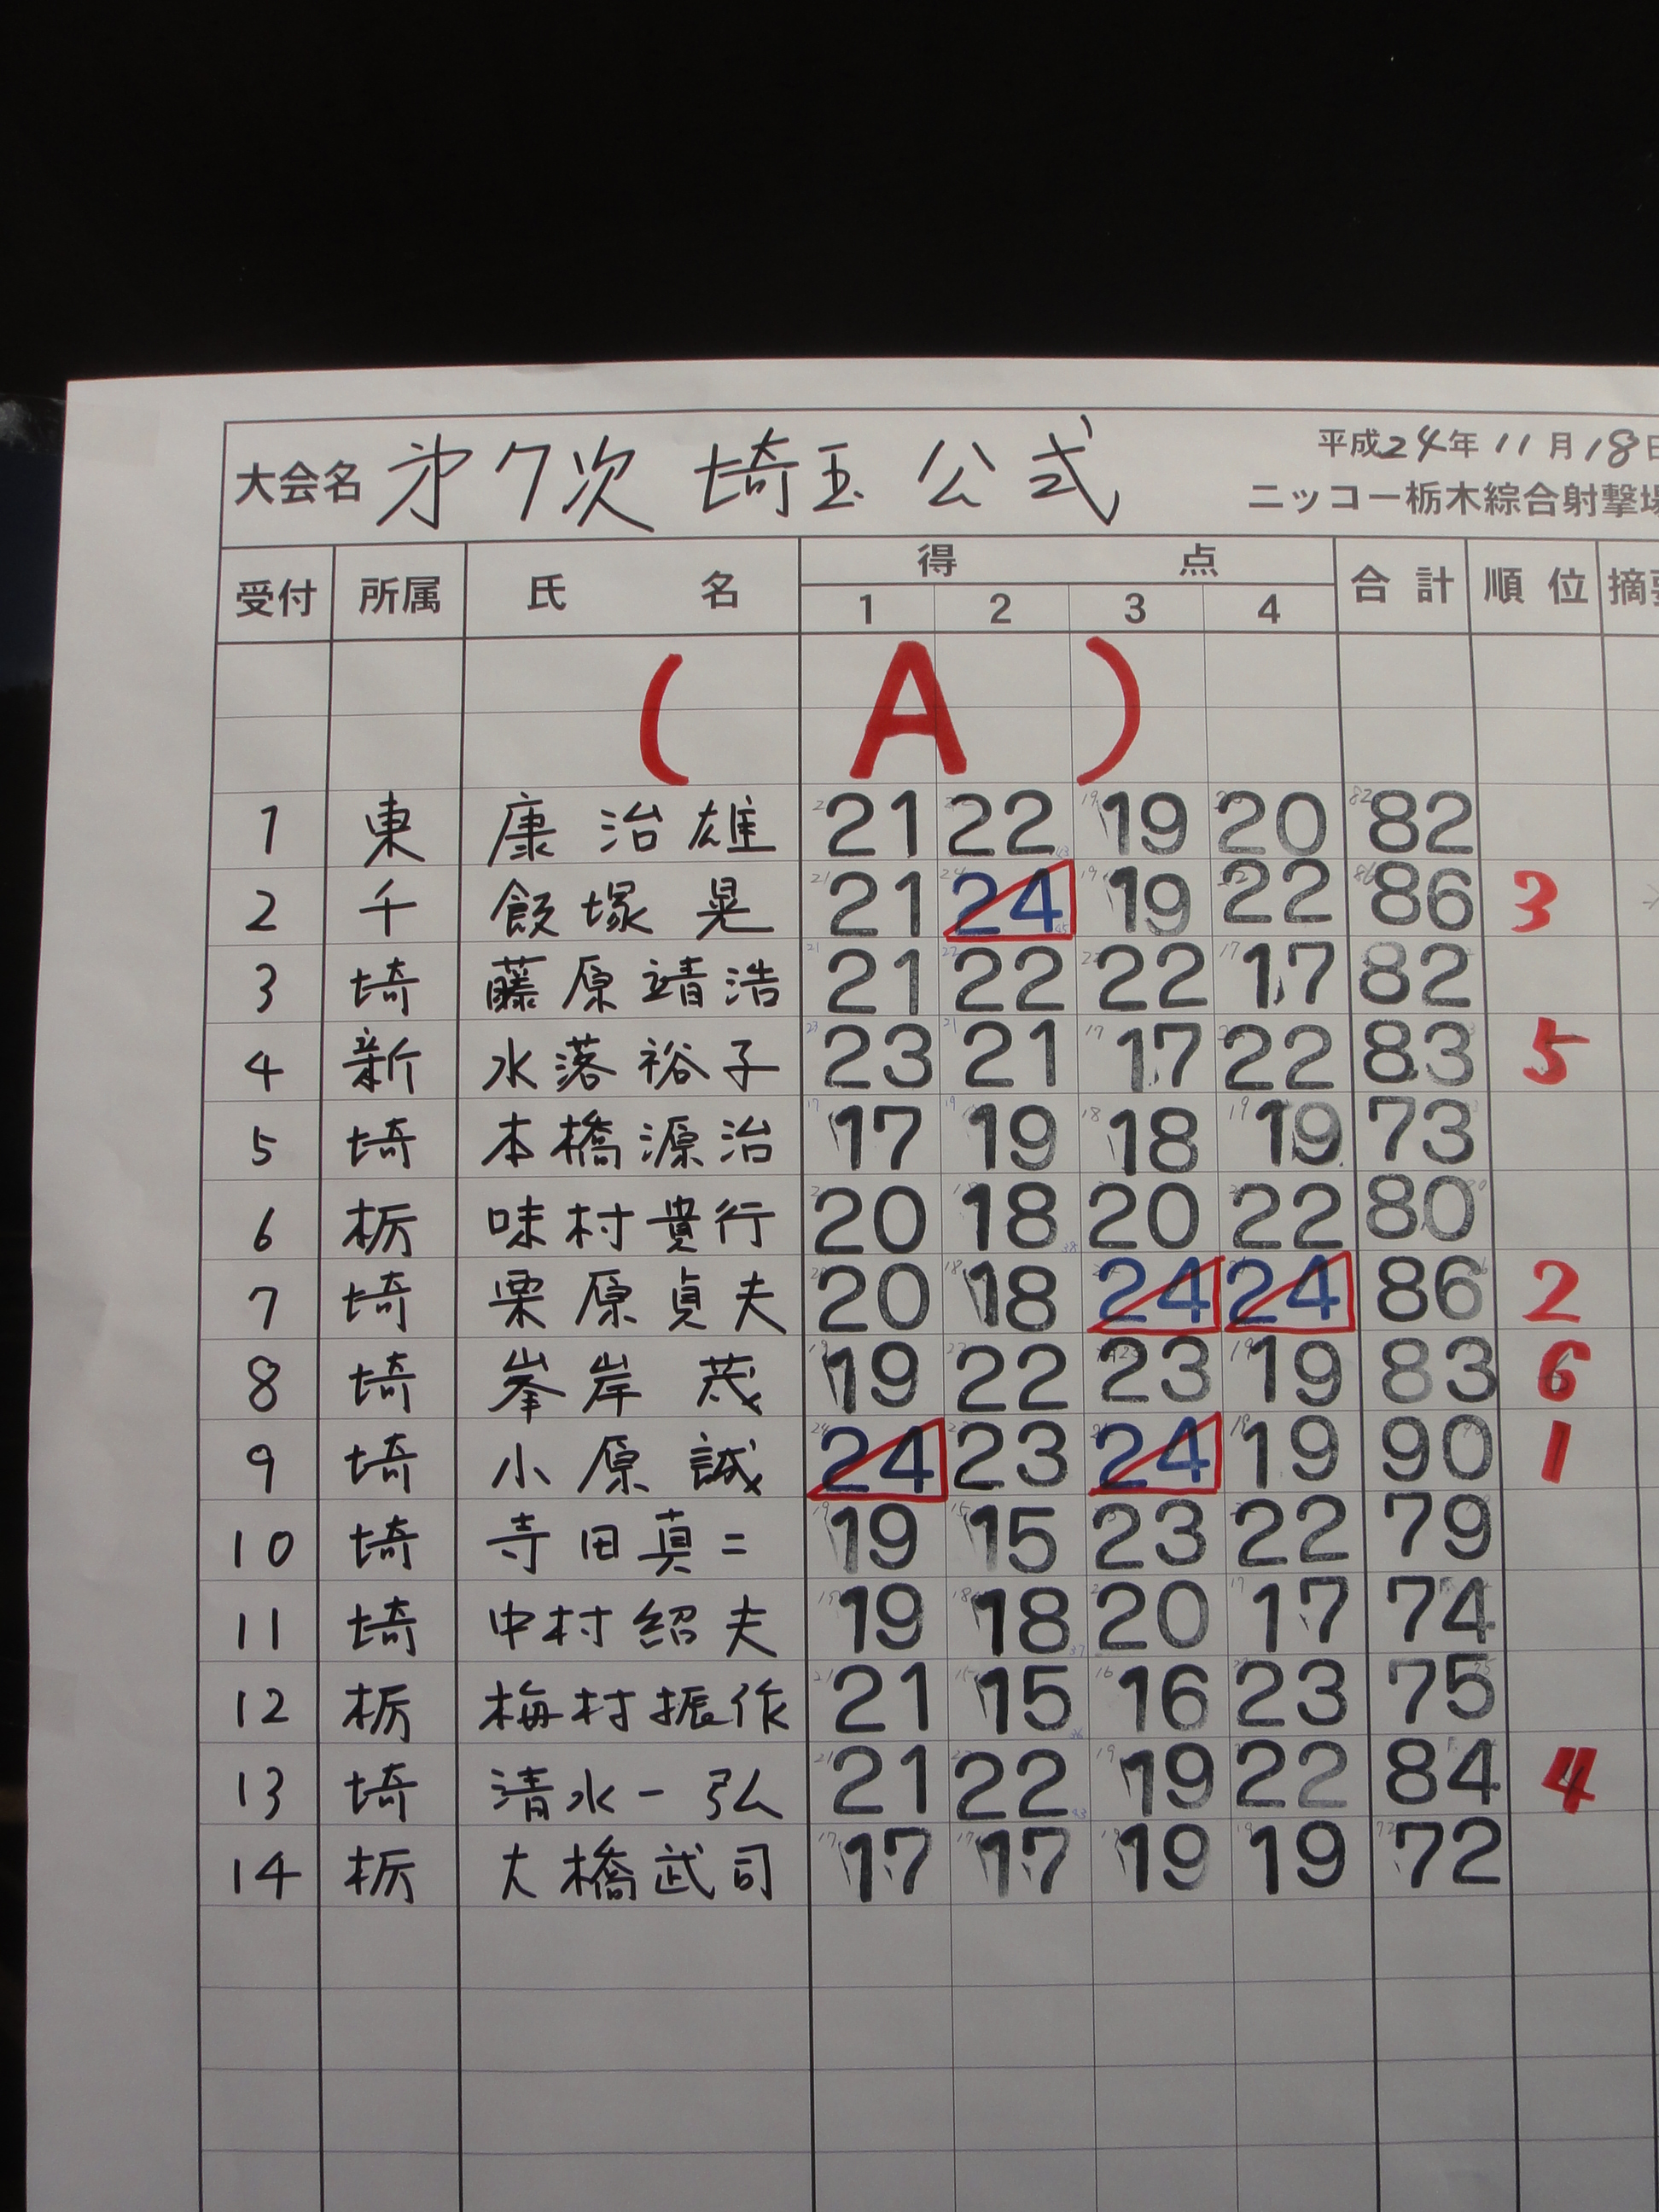 大会名 第7次 埼玉 公式 平成24年11月18日
ニッコー栃木綜合射撃場
受付 所属 氏名 得点 合計 順位 摘要
1 2 3 4
(A)
1 東 康治雄 21 22 19 20 82
2 千 飯塚晃 21 24 19 22 86 3
3 埼 藤原靖浩 21 22 22 17 82
4 新 水落裕子 23 21 17 22 83 5
5 埼 本橋源治 17 19 18 19 73
6 栃 味村貴行 20 18 20 22 80
7 埼 栗原貞夫 20 18 24 24 86 2
8 埼 峯岸茂 19 22 23 19 83 6
9 埼 小原誠 24 23 24 19 90 1
10 埼 寺田真二 19 15 23 22 79
11 埼 中村紹夫 19 18 20 17 74
12 栃 梅村振作 21 15 16 23 75
13 埼 清水一弘 21 22 19 22 84 4
14 栃 大橋武司 17 17 19 19 72